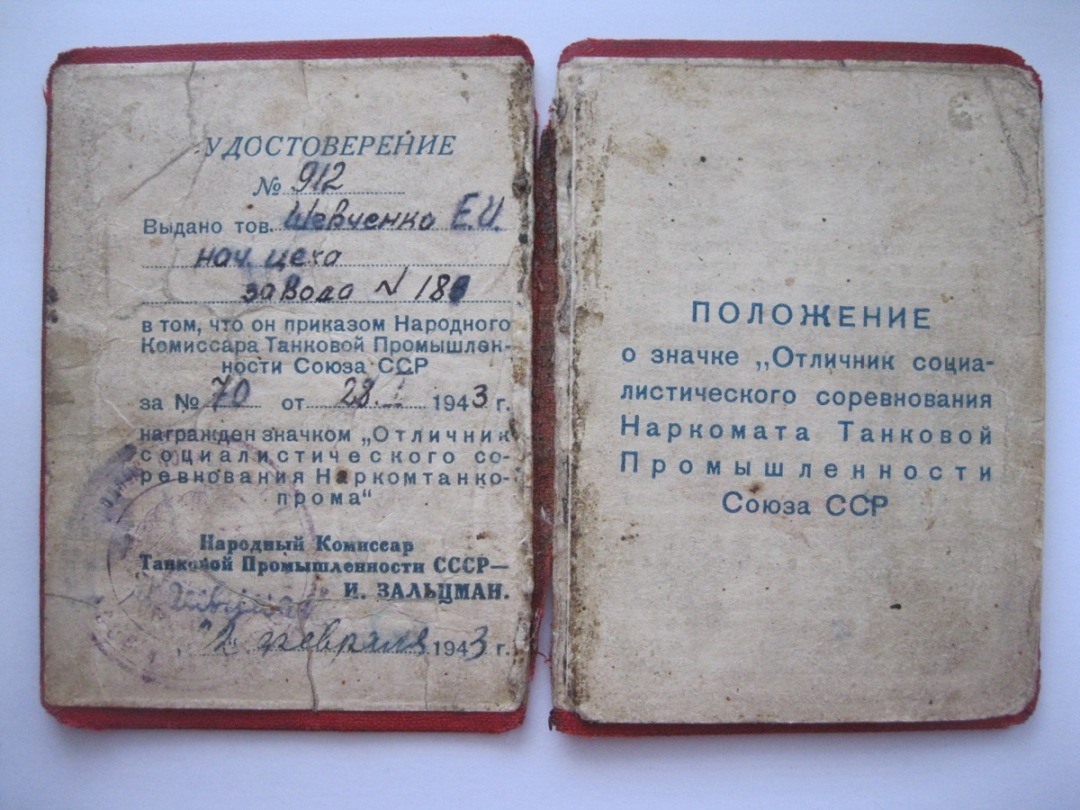 УДОСТОВЕРЕНИЕ
№ 912
Выдано тов. Шевченко Е.И.
нач. цеха
завода N 18
в том, что он приказом Народного
Комиссара Танковой Промышлен-
ности Союза ССР
за № 70 от 28.I 1943 г.
награжден значком „Отличник
социалистического со-
ревнования Наркомтанко-
прома“
Народный Комиссар
Танковой Промышленности СССР—
И. ЗАЛЬЦМАН.
февраля 1943 г.
ПОЛОЖЕНИЕ
о значке „Отличник социа-
листического соревнования
Наркомата Танковой
Промышленности
Союза ССР